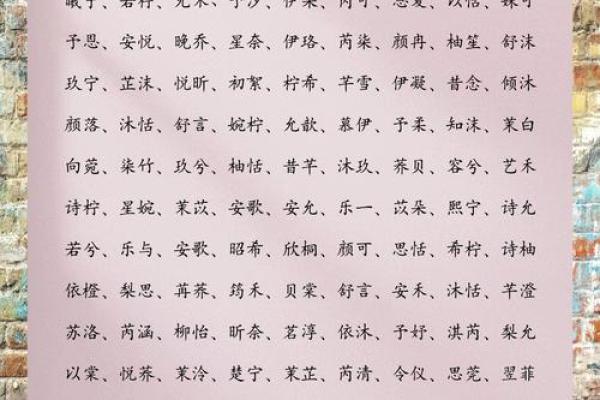 予恩、安悦、晚乔、星奈、伊珞、芮柒、颜冉、柚笙、舒沫
玖宁、芷沫、悦昕、初絮、柠希、芊雪、伊凝、昔念、倾沐
颜落、沐恬、舒言、婉柠、允歆、慕伊、予柔、知沫、茉白
向菀、柒竹、玖兮、柚恬、昔芊、沐玖、荞贝、容兮、艺禾
诗柠、星婉、茉苡、安歌、安允、乐一、苡朵、熙宁、诗允
若兮、乐与、安歌、昭希、欣桐、颜可、思恬、希柠、诗柚
依橙、梨思、苒荞、筠禾、贝棠、舒言、安禾、沐恬、芊澄
苏洛、芮涵、柳怡、昕奈、茗淳、依沐、予妤、淇芮、梨允
以棠、悦荞、茉泠、楚宁、茉芷、芮清、令仪、思莞、翌菲